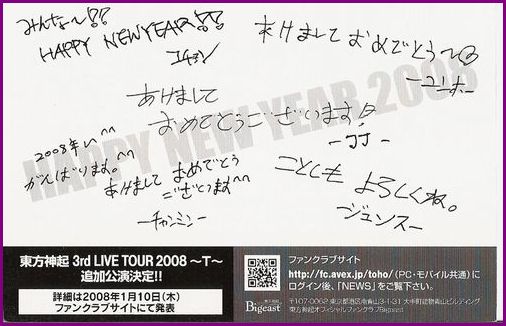 みんな〜!!
HAPPY NEWYEAR!!
ユチョン
あけまして おめでとう〜
ーユーホー
あけまして
おめでとうございます!
ーJJー
2008年い^^
がんばります。^^
あけまして おめでとう
ございます^^
ーチャンミンー
ことしも よろしくね。
ージュンスー
HAPPY NEW YEAR 2008
東方神起 3rd LIVE TOUR 2008 〜T〜
追加公演決定!!
詳細は2008年1月10日(木)
ファンクラブサイトにて発表
Bigeast
ファンクラブサイト
http://fc.avex.jp/toho/(PC・モバイル共通)に
ログイン後、「NEWS」をご覧下さい。
〒107-0062 東京都港区南青山3-1-31
東方神起オフィシャルファンクラブBigeast